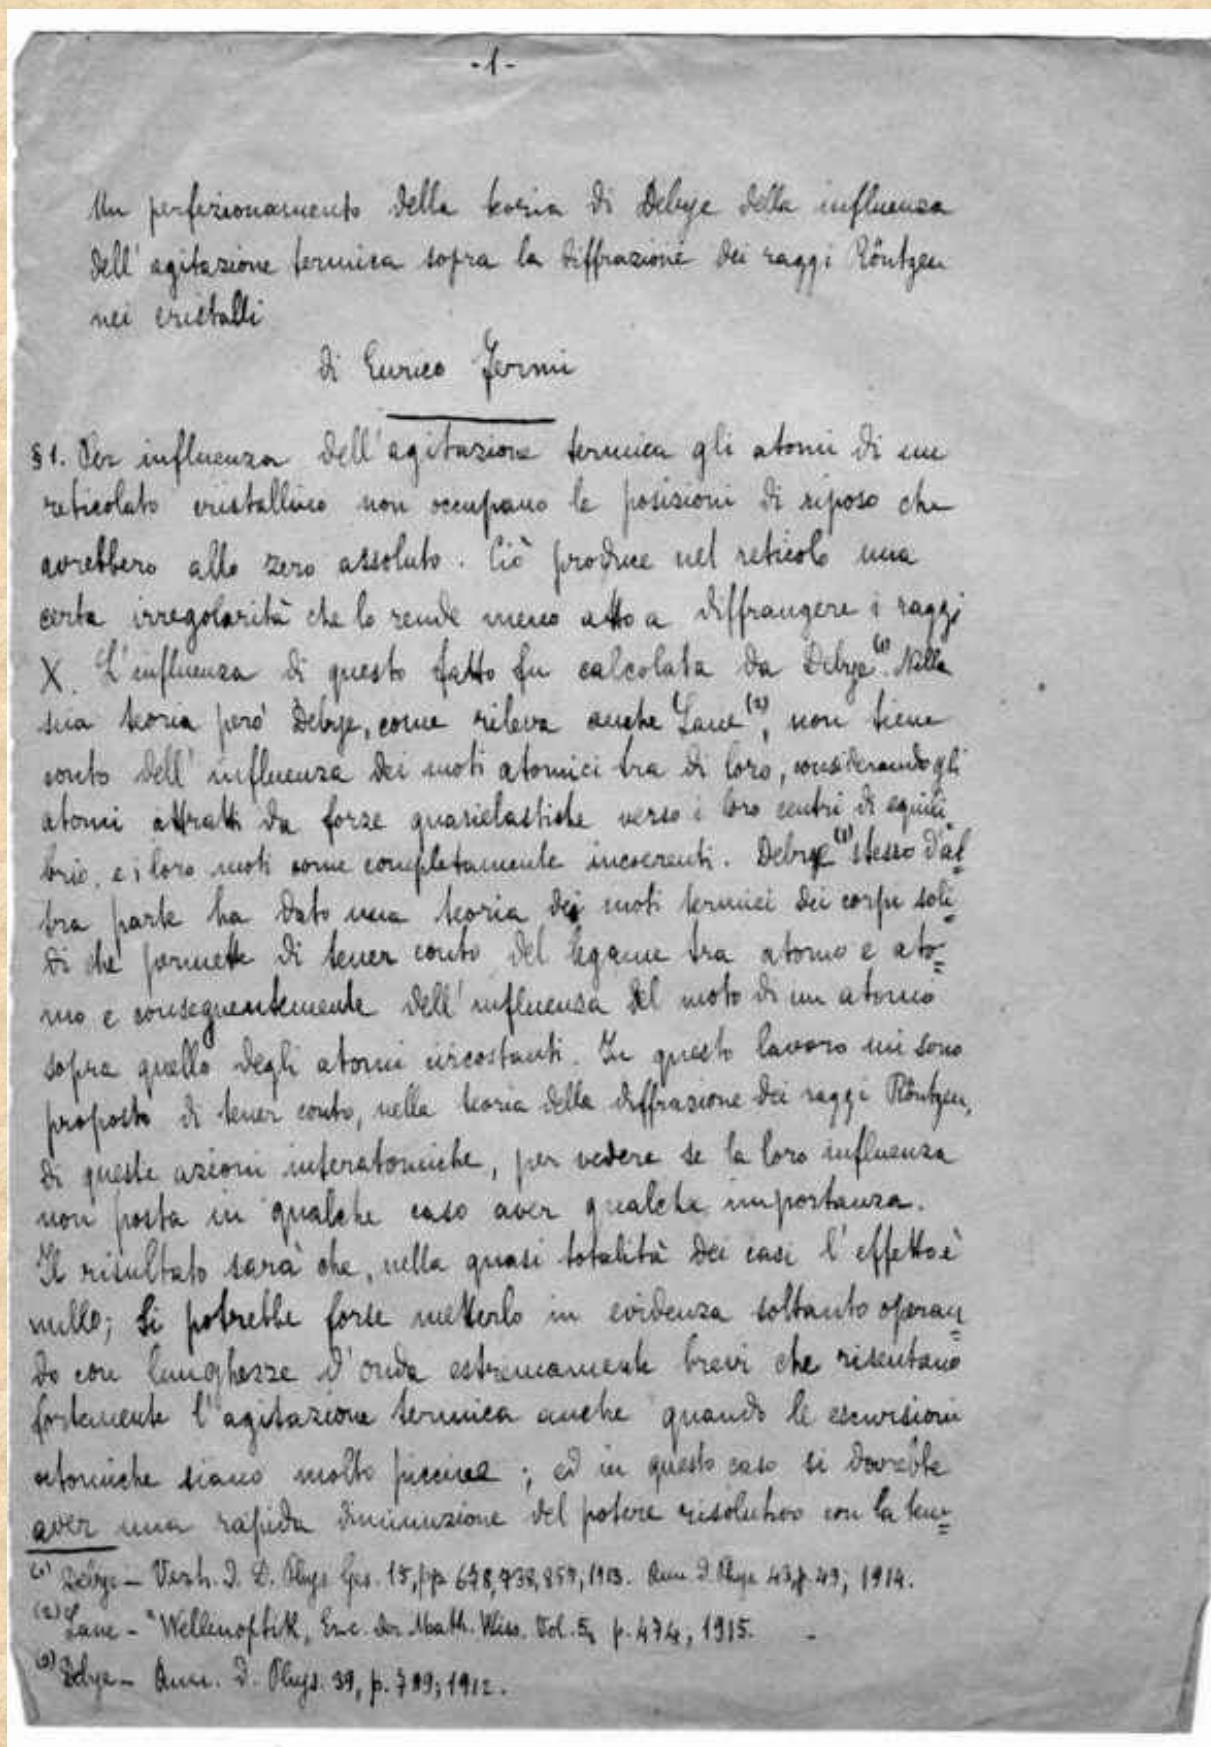 -1-
Un perfezionamento della teoria di Debye della influenza
dell'agitazione termica sopra la diffrazione dei raggi Röntgen
nei cristalli
di Enrico Fermi
§1. Per influenza dell'agitazione termica gli atomi di un
reticolato cristallino non occupano le posizioni di riposo che
avrebbero allo zero assoluto. Ciò produce nel reticolo una
certa irregolarità che lo rende meno atto a diffrangere i raggi
X. L'influenza di questo fatto fu calcolata da Debye(1). Nella
sua teoria però Debye, come rileva anche Laue(2), non tiene
conto dell'influenza dei moti atomici tra di loro, considerando gli
atomi attratti da forze quasielastiche verso i loro centri di equili=
brio, e i loro moti come completamente incoerenti. Debye(3) stesso d'al=
tra parte ha dato una teoria dei moti termici dei corpi soli=
di che permette di tener conto del legame tra atomo e ato=
mo e conseguentemente dell'influenza del moto di un atomo
sopra quello degli atomi circostanti. In questo lavoro mi sono
proposto di tener conto, nella teoria della diffrazione dei raggi Röntgen,
di queste azioni interatomiche, per vedere se la loro influenza
non possa in qualche caso aver qualche importanza.
Il risultato sarà che, nella quasi totalità dei casi l'effetto è
nullo; Si potrebbe forse metterlo in evidenza soltanto operan=
do con lunghezze d'onda estremamente brevi che risentano
fortemente l'agitazione termica anche quando le escursioni
atomiche siano molto piccine; ed in questo caso si dovrebbe
aver una rapida diminuzione del potere risolutivo con la tem=
(1) Debye – Verh. D. D. Phys. Ges. 15, pp. 678, 738, 857, 1913. Ann. d. Phys. 43, p. 49; 1914.
(2) Laue – "Wellenoptik, Enc. der Math. Wiss. Vol. 5, p. 474, 1915.
(3) Debye – Ann. d. Phys. 39, p. 789; 1912.